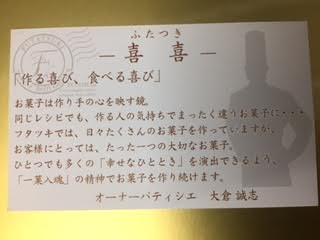 ふたつき
― 喜 喜 ―
「作る喜び、食べる喜び」
お菓子は作り手の心を映す鏡。
同じレシピでも、作る人の気持ちでまったく違うお菓子に・・・
フタツキでは、日々たくさんのお菓子を作っていますが、
お客様にとっては、たった一つの大切なお菓子。
ひとつでも多くの「幸せなひととき」を演出できるよう、
「一菓入魂」の精神でお菓子を作り続けます。
オーナーパティシエ　大倉 誠志